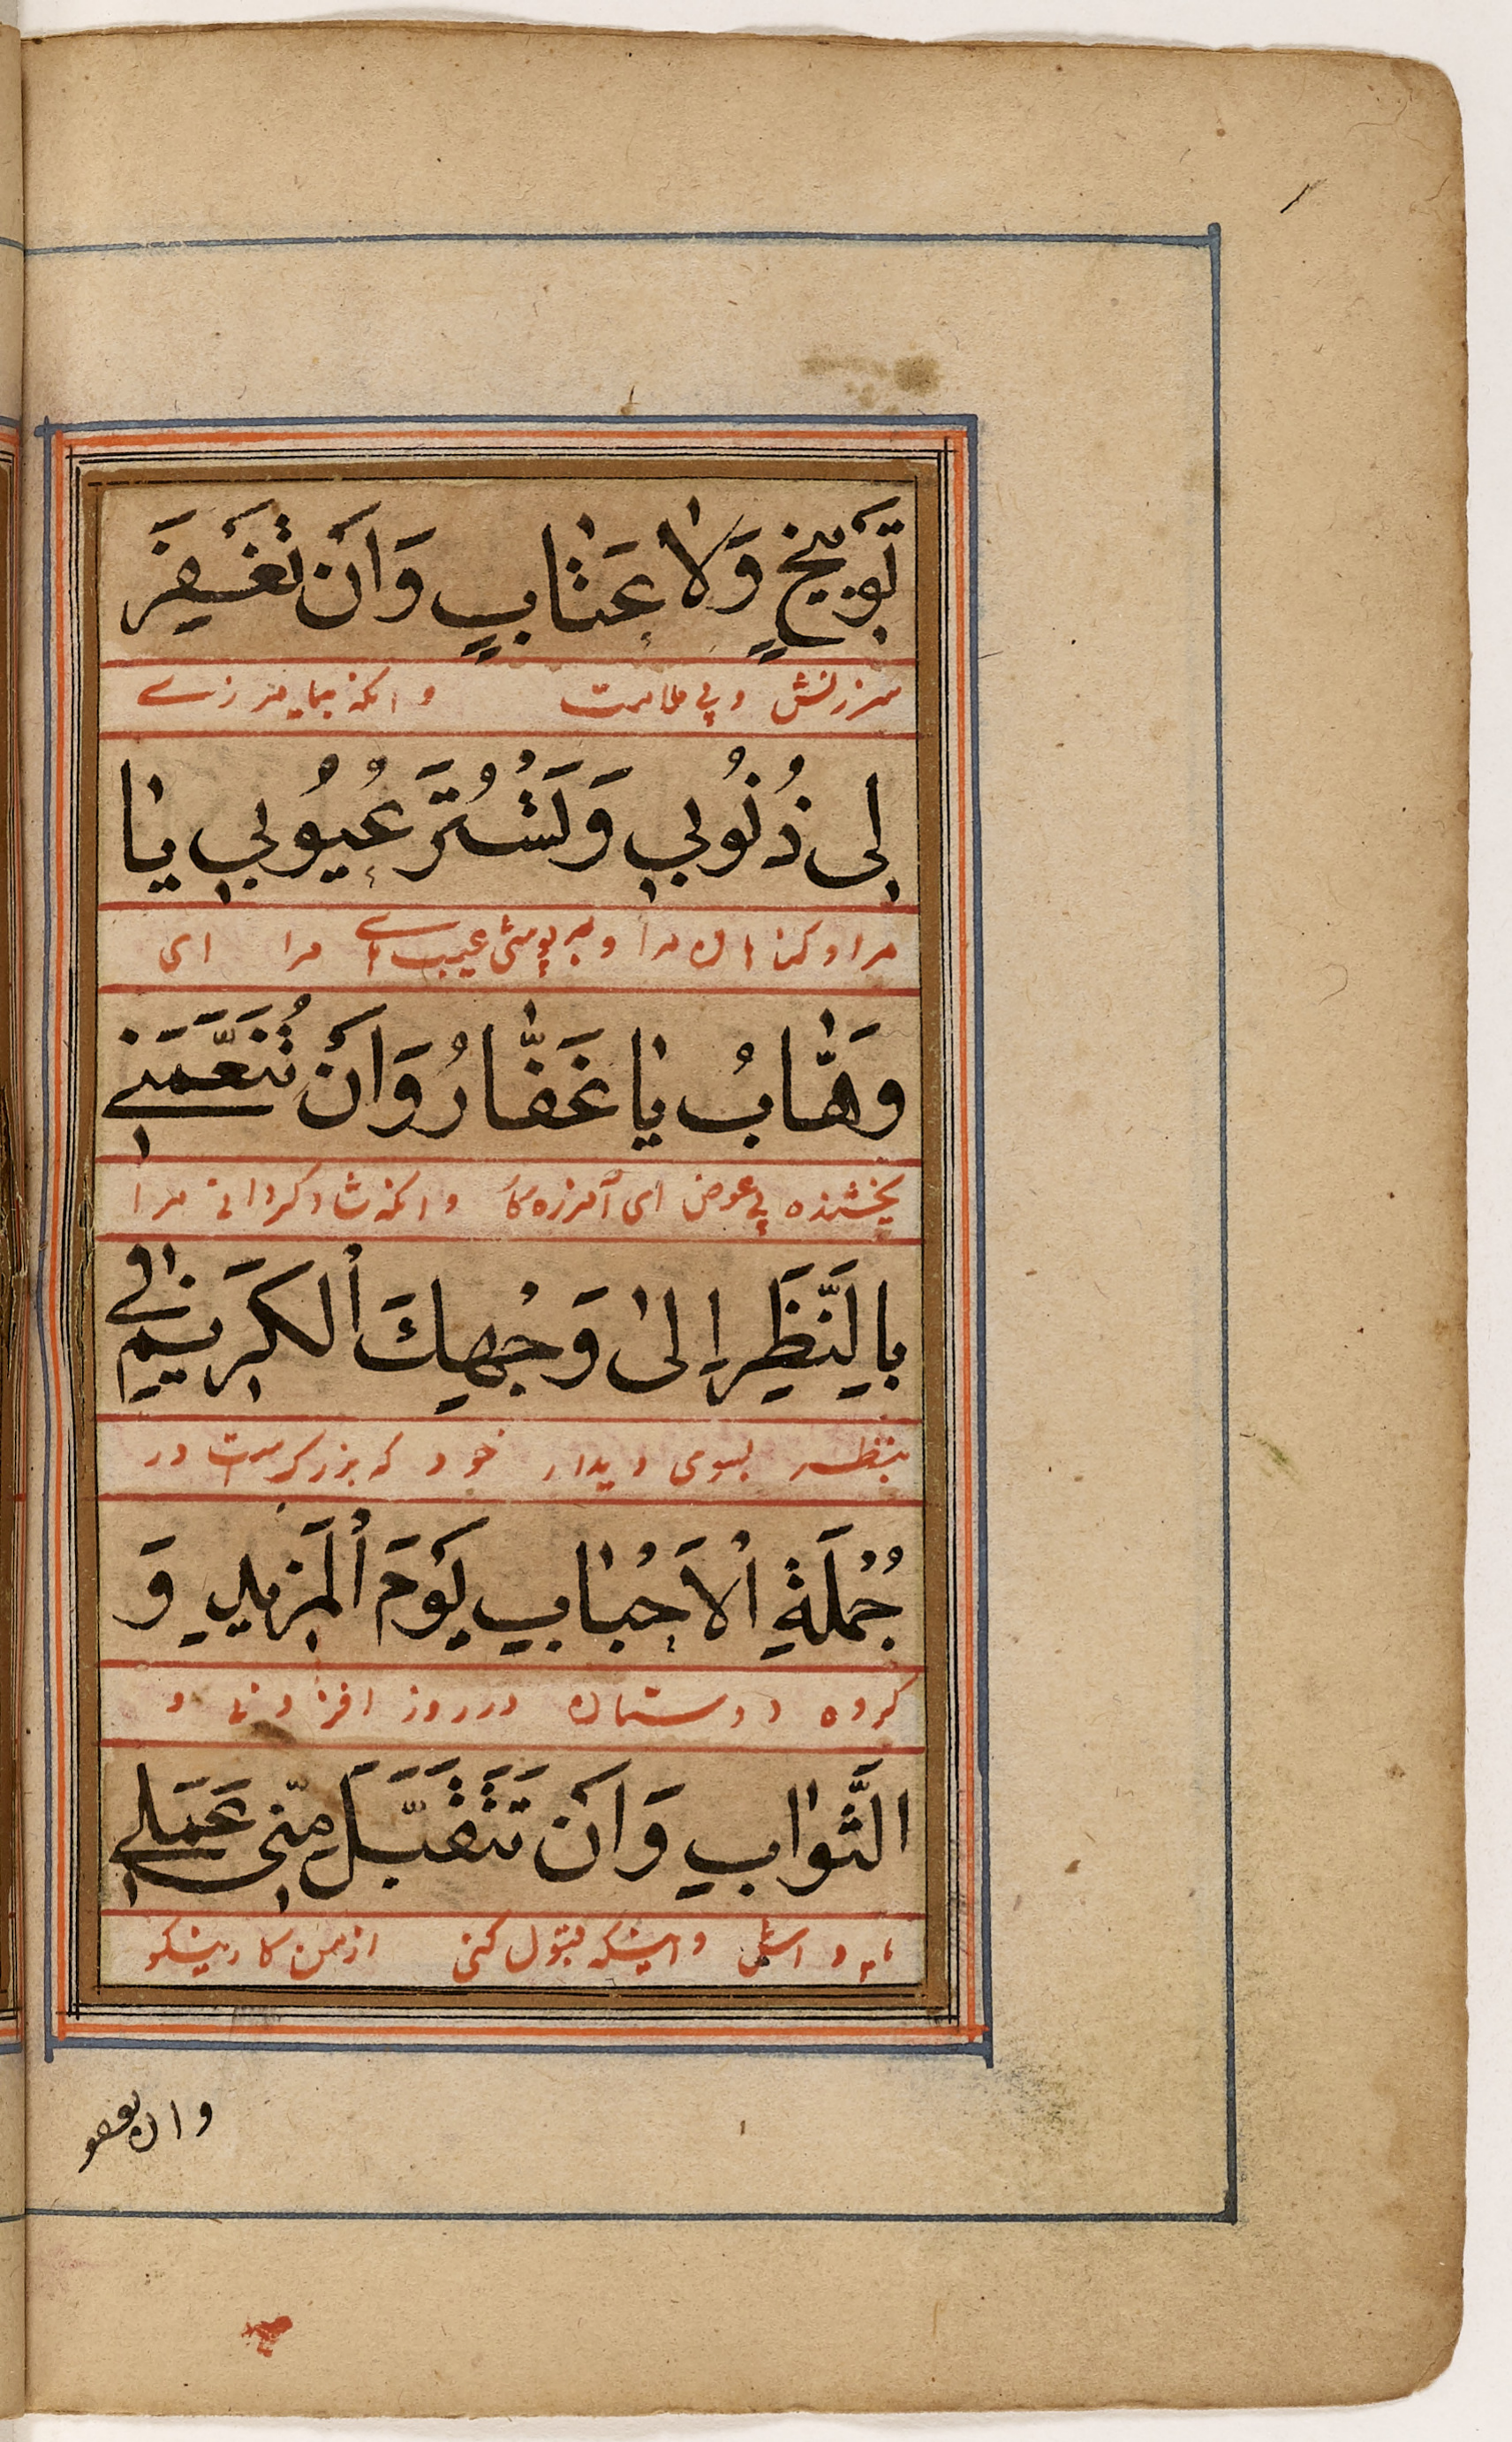 تَوْبِيخٍ وَلَا عِتَابٍ وَاَنْ تَغْفِرَ
سرزنش و بی ملامت وانکه بیامرزے
لِی ذُنُوبِي وَتَسْتُرَ عُيُوبِي يَا
مرا و کناهان مرا و بپوشی عیبهاے مرا ای
وَهَّابُ يَا غَفَّارُ وَاَنْ تُنَعِّمَنِے
بخشنده بی عوض ای آمرزه کار وانکه شاد کردانی مرا
بِالنَّظَرِ اِلیٰ وَجْهِكَ الْكَرِيمِ فِي
بنظر بسوی دیدار خود که بزرکست در
جُمْلَةِ الْاَحْبَابِ يَوْمَ الْمَزِيدِ وَ
کروه دوستان در روز افزونی و
الثَّوَابِ وَاَنْ تَتَقَبَّلَ مِنِّی عَمَلِے
و اینکه قبول کنی از من کار نیکو
وان تعفو